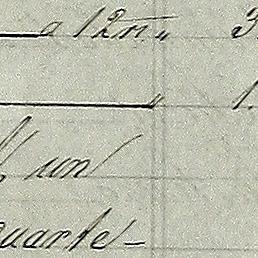 a 12rs „ 3
„ 1.
un
quarte-